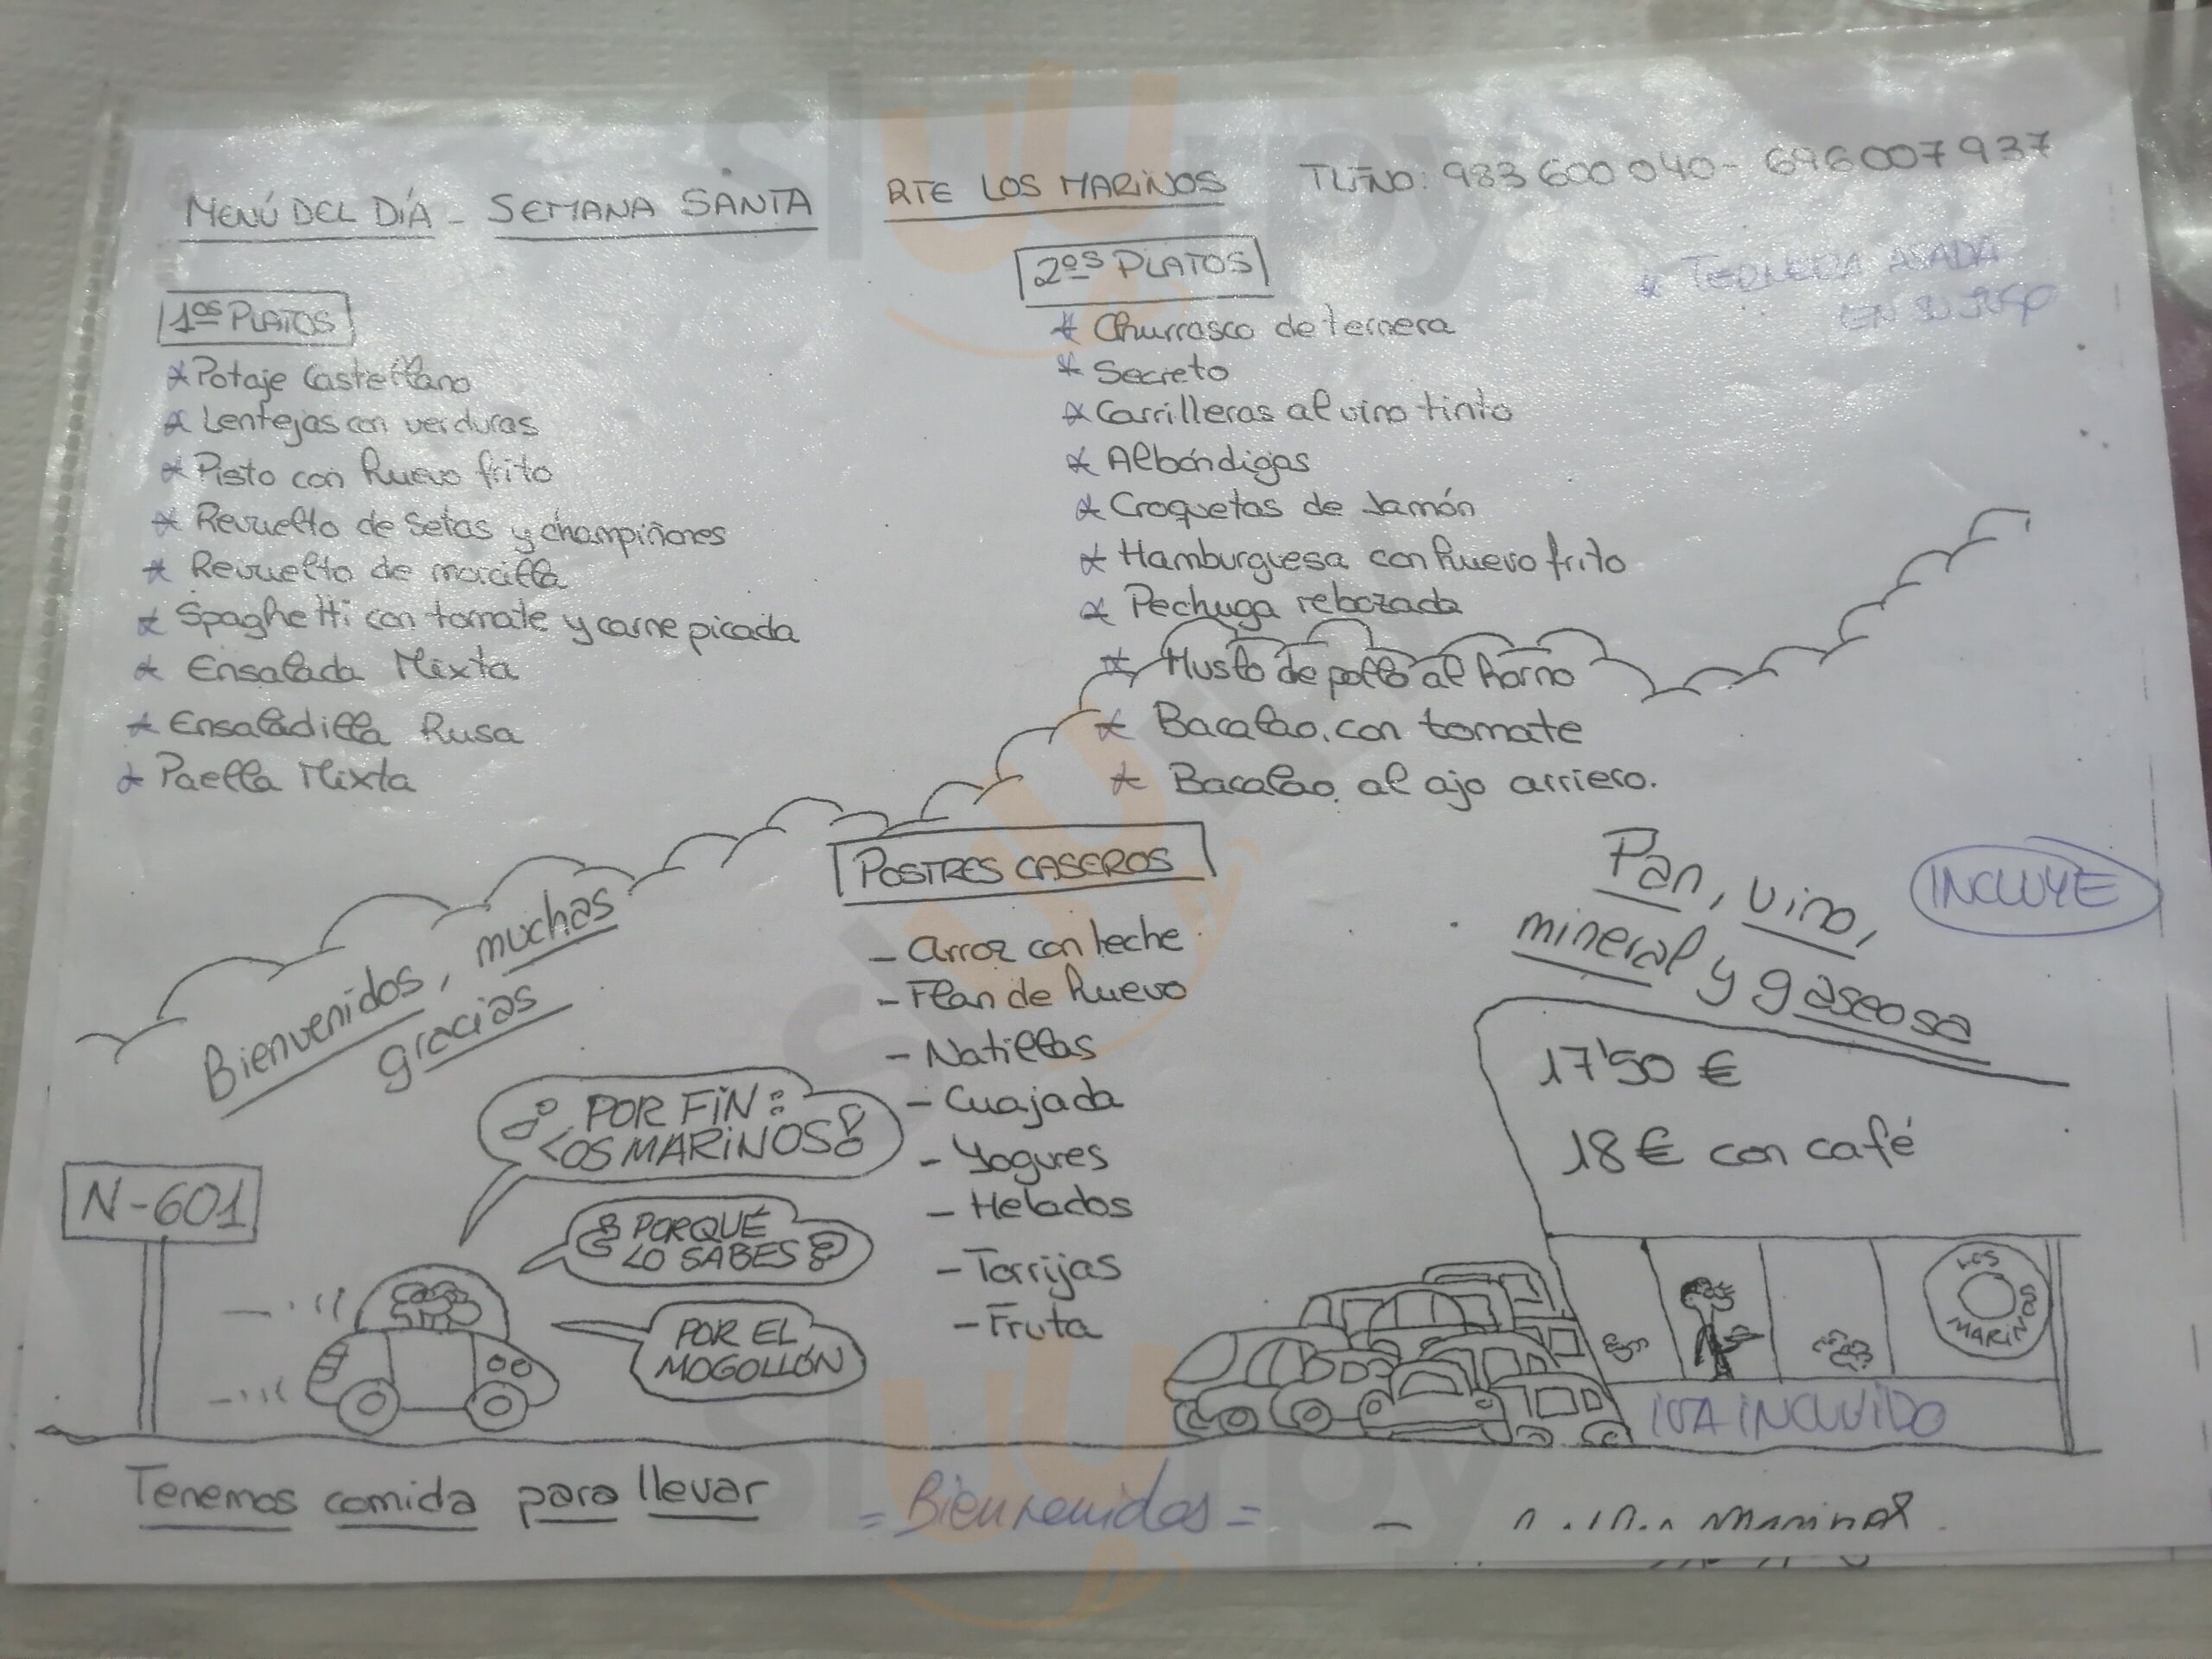 MENÚ DEL DÍA - SEMANA SANTA RTE LOS MARINOS TLFNO: 983 600 040 - 696007937
1os PLATOS
* Potaje Castellano
* Lentejas con verduras
* Pisto con huevo frito
* Revuelto de Setas y champiñones
* Revuelto de morcilla
* Spaghetti con tomate y carne picada
* Ensalada Mixta
* Ensaladilla Rusa
* Paella Mixta
2os PLATOS
* Churrasco de ternera
* Secreto
* Carrilleras al vino tinto
* Albóndigas
* Croquetas de Jamón
* Hamburguesa con huevo frito
* Pechuga rebozada
* Muslo de pollo al horno
* Bacalao con tomate
* Bacalao al ajo arriero.
* TERNERA ASADA
EN SU JUGO
POSTRES CASEROS
- Arroz con leche
- Flan de huevo
- Natillas
- Cuajada
- Yogures
- Helados
- Torrijas
- Fruta
Pan, vino,
mineral y gaseosa
INCLUYE
17'50 €
18 € con café
Bienvenidos, muchas
gracias
¡POR FIN:
LOS MARINOS!
¿PORQUÉ
LO SABES?
POR EL
MOGOLLÓN
N-601
LOS
MARINOS
IVA INCLUIDO
Tenemos comida para llevar
= Bienvenidos =
sluurpy
sluurpy
sluurpy